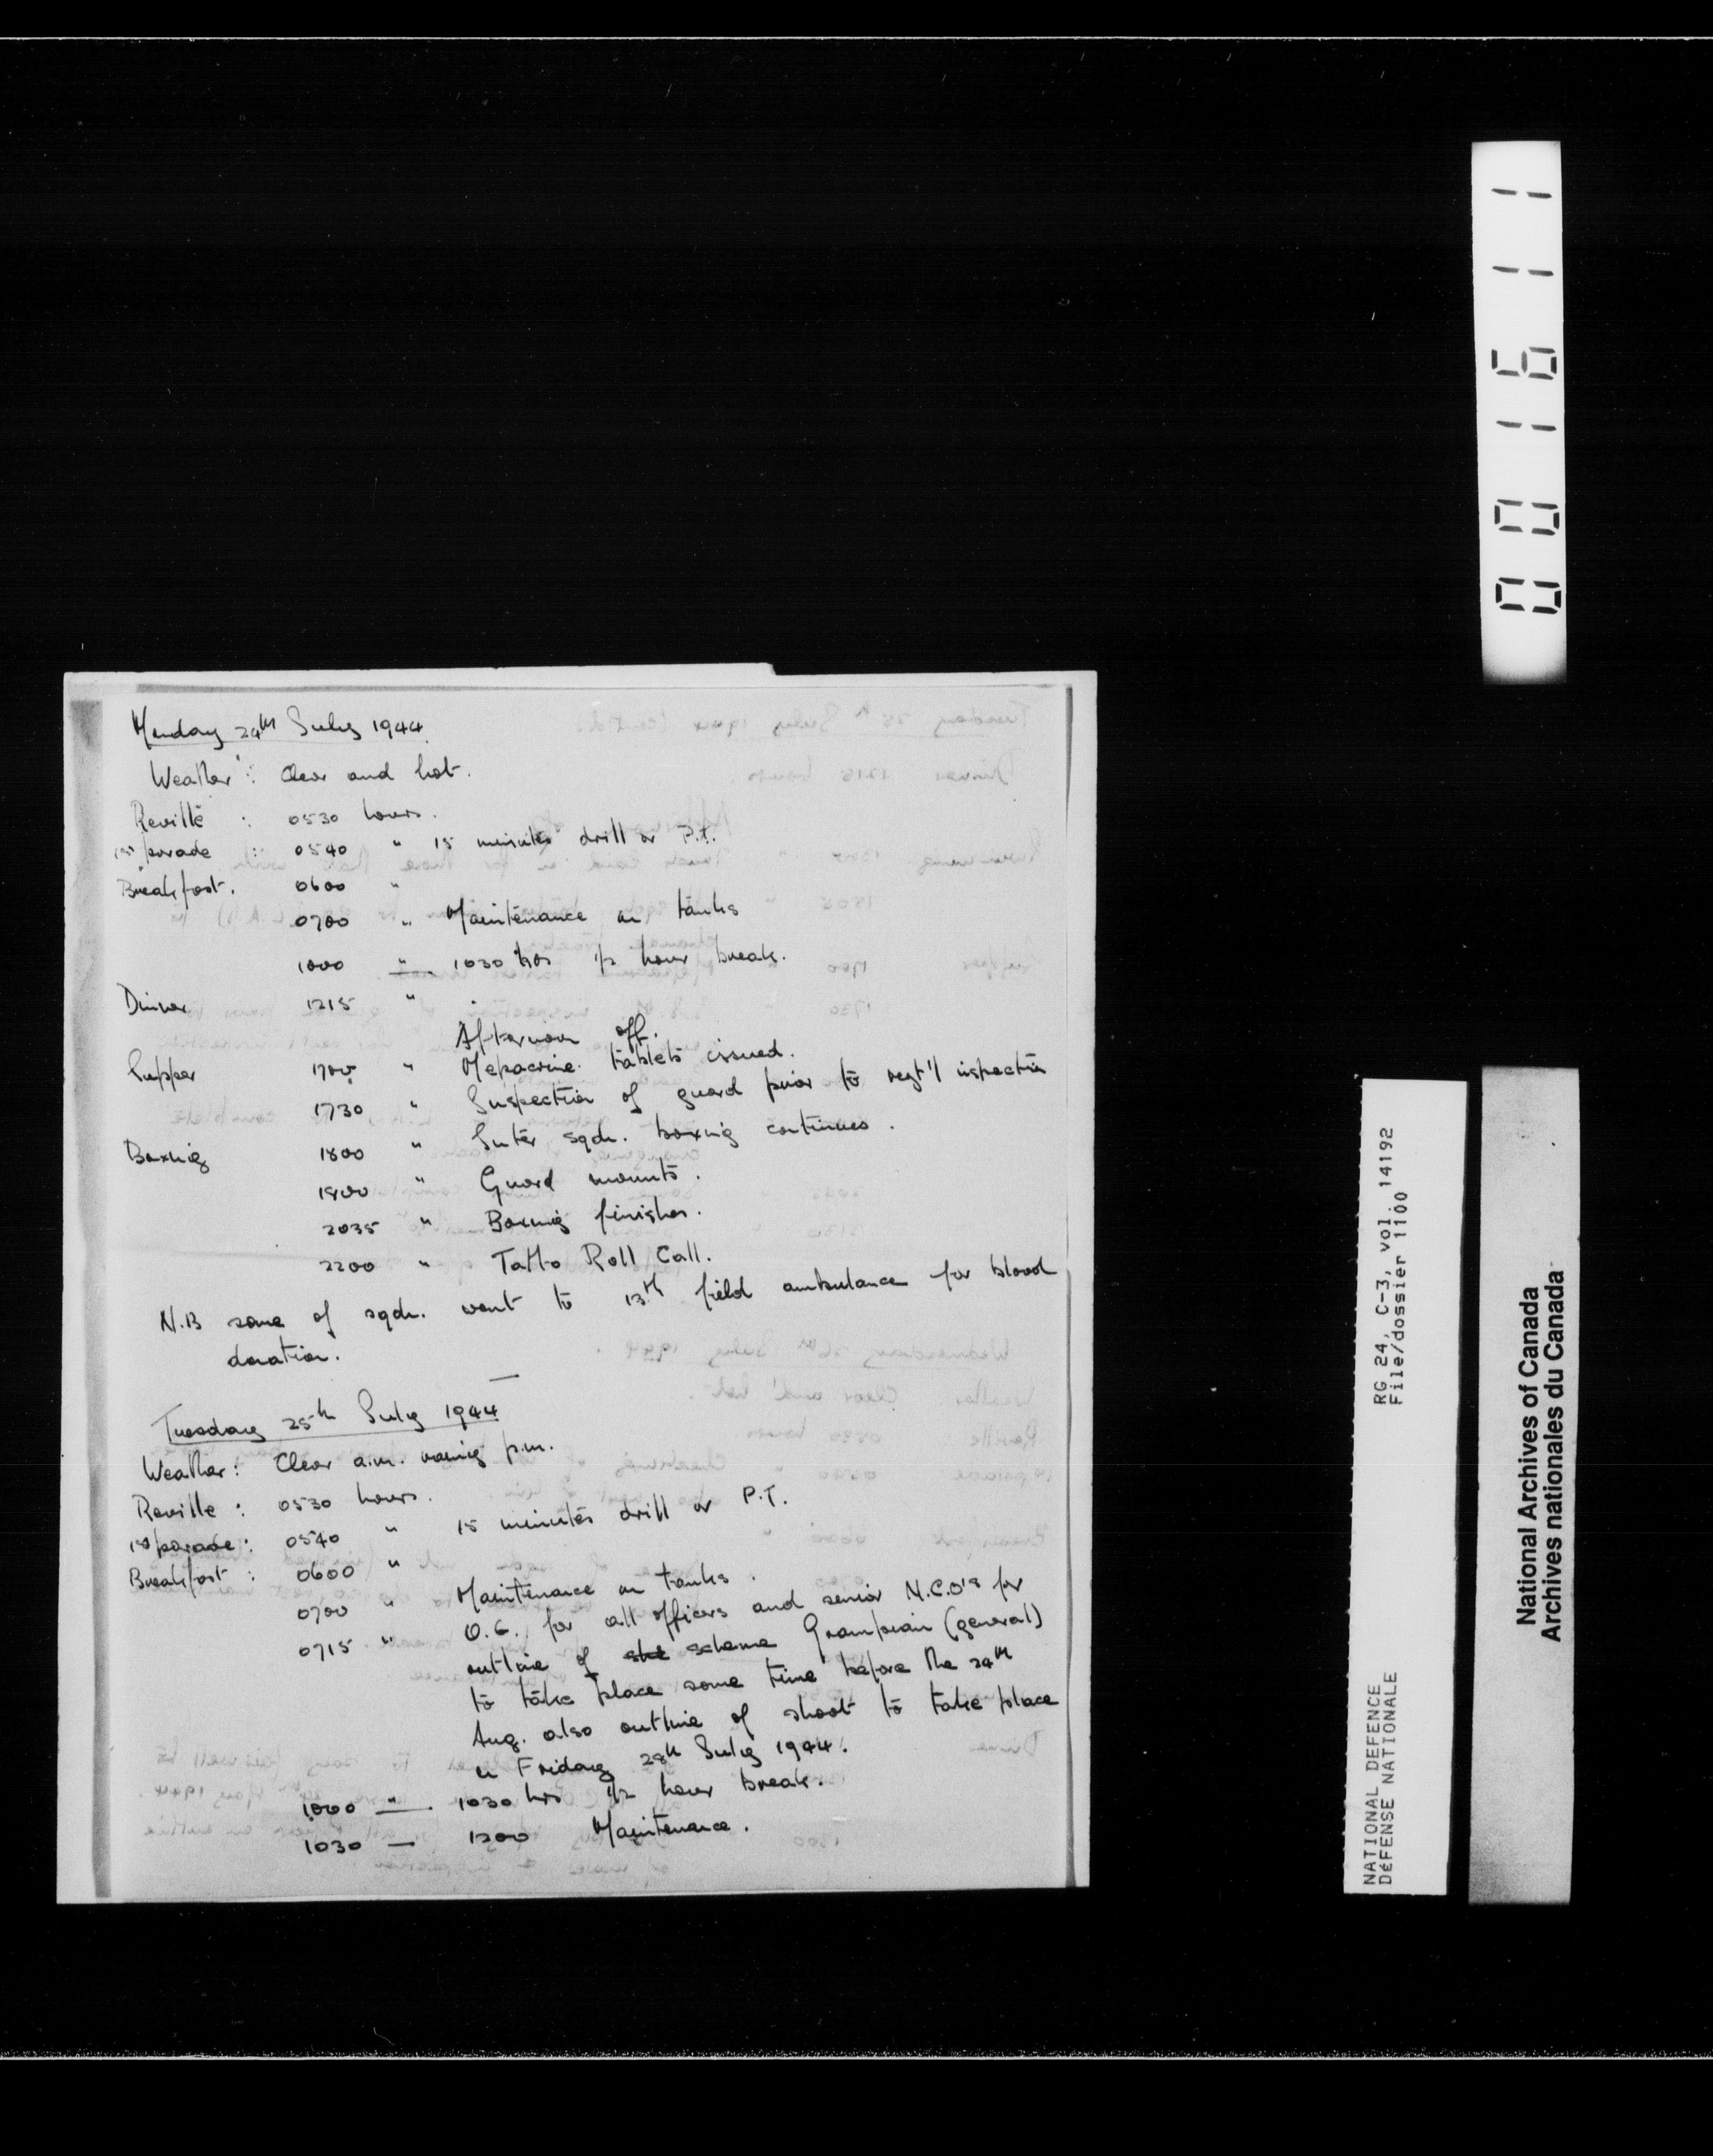 Monday 24th July 1944
Weather: Clear and hot.
Reville : 0530 hours.
1st parade : 0540 " 15 minutes drill or P.T.
Breakfast. 0600 "
0700 " Maintenance on tanks
1000 " — 1030 hrs 1/2 hour break.
Dinner 1215 " .
Afternoon off.
Supper 1700 " Mepacrine tablets issued.
1730 " Inspection of guard prior to regt'l inspection
Boxing 1800 " Inter sqdn. boxing continues.
1800 " Guard mounts.
2035 " Boxing finishes.
2200 " Tatto Roll Call.
N.B some of sqdn. went to 13th field ambulance for blood
donation.
Tuesday 25th July 1944
Weather: Clear a.m. p.m.
Reville : 0530 hours.
1st parade: 0540 " 15 minutes drill or P.T.
Breakfast : 0600 "
0700 " Maintenance on tanks.
0715 " O.G. for all officers and senior N.C.O's for
outline of scheme Grampian (general)
to take place some time before the 24th
Aug. also outline of shoot to take place
on Friday 28th July 1944.
1000 " — 1030 hrs 1/2 hour break.
1030 — 1200 Maintenance.
001611
NATIONAL DEFENCE RG 24, C-3, vol. 14192
DéFENSE NATIONALE File/dossier 1100
National Archives of Canada
Archives nationales du Canada